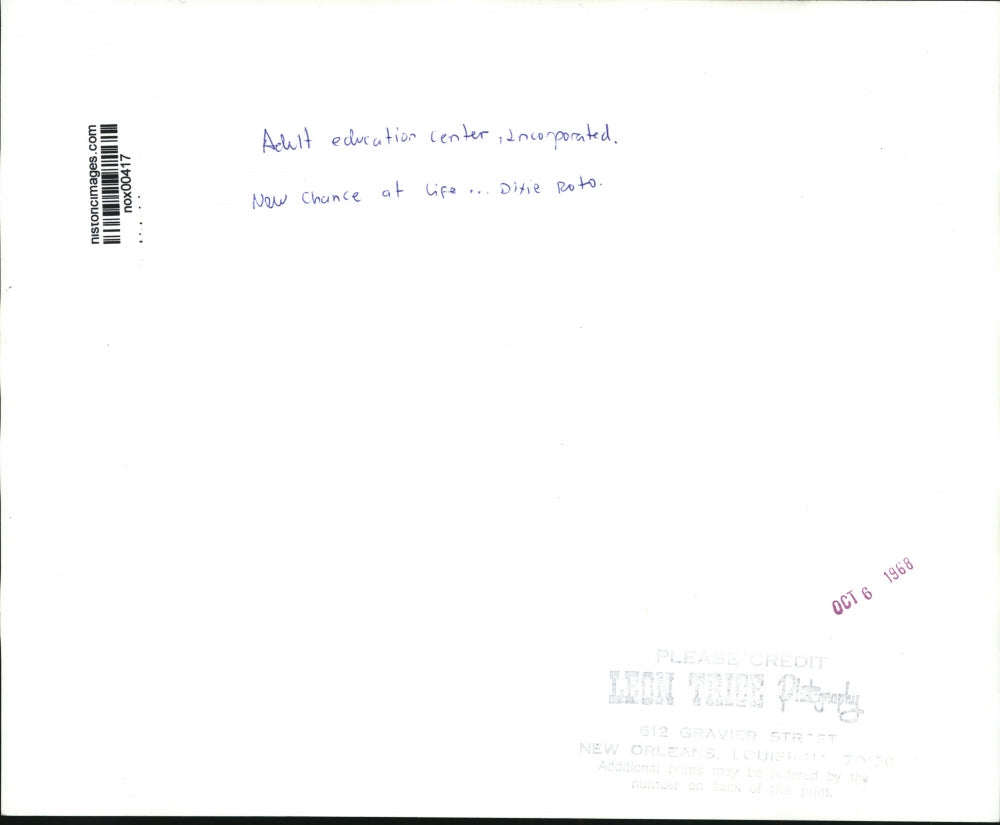 historicimages.com
nox00417
Adult education center, Incorporated.
New Chance at Life... Dixie Roto.
OCT 6 1968
PLEASE CREDIT
LEON TRICE Photography
612 GRAVIER STREET
NEW ORLEANS, LOUISIANA
Additional prints may be ordered by the
number on back of this print.